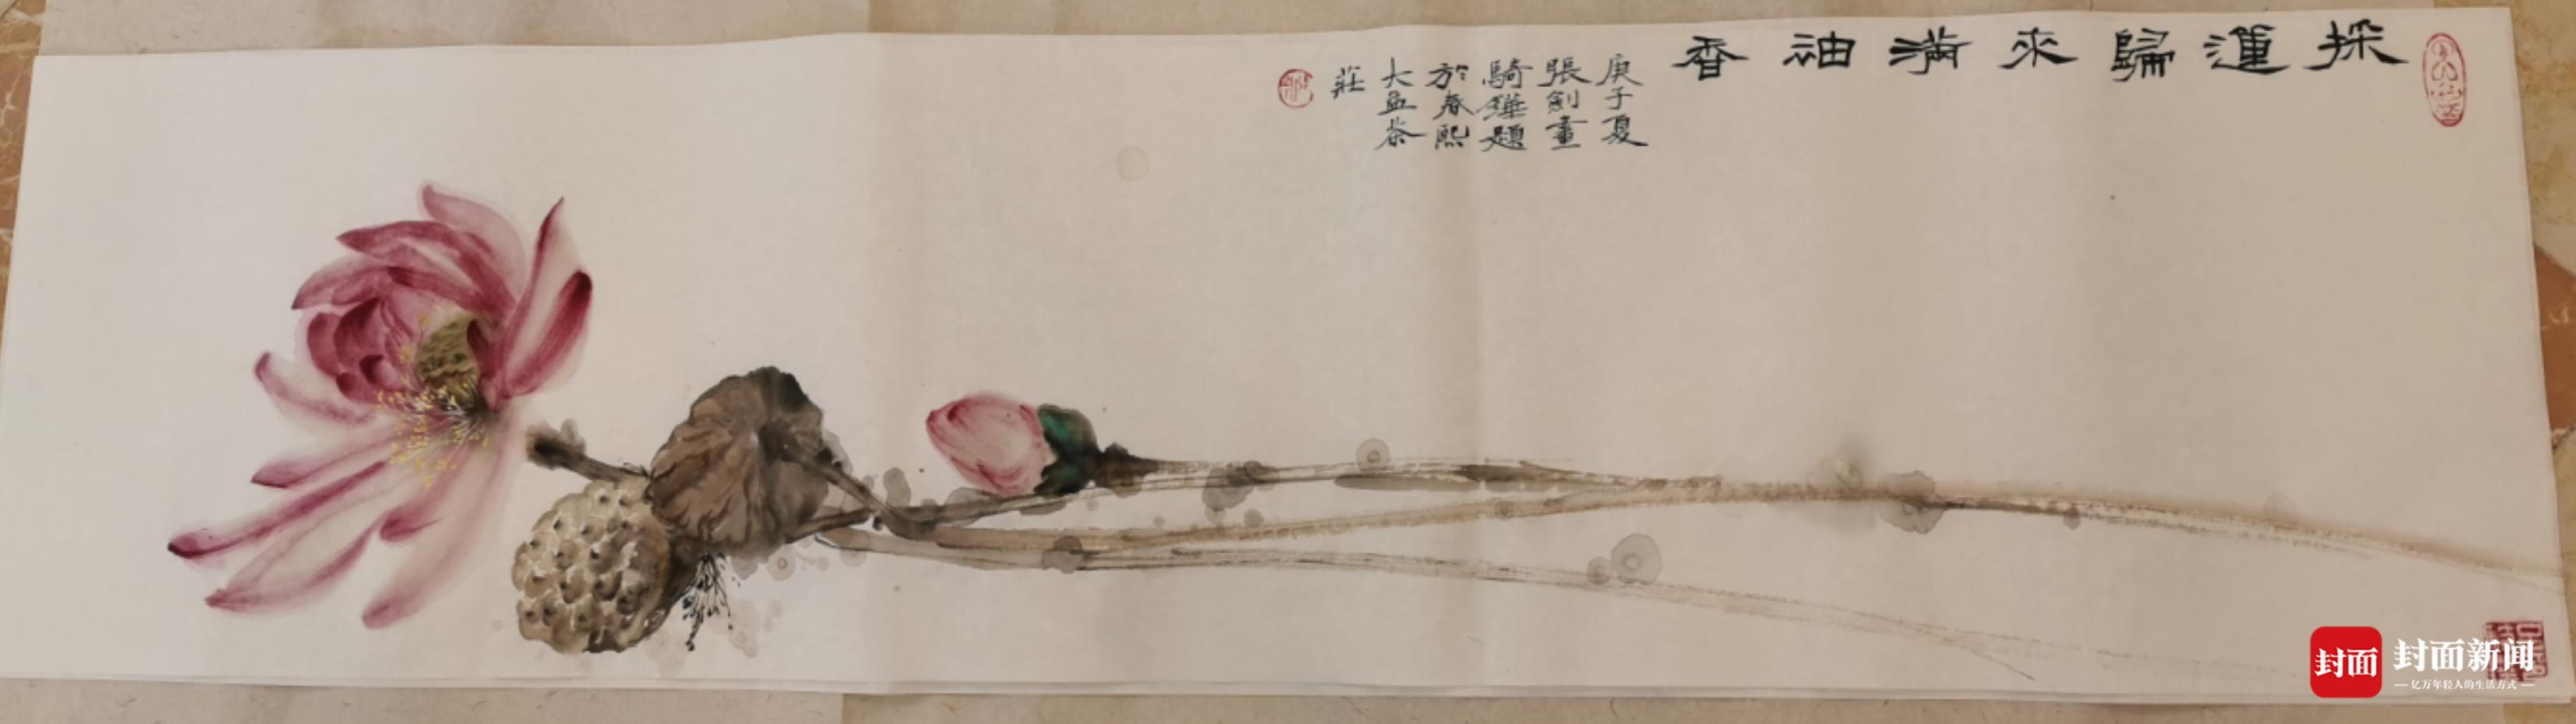 採蓮歸來滿袖香
庚子夏
張劍畫
騎驊題
於春熙
大孟茶
莊
封面
封面新闻
亿万年轻人的生活方式